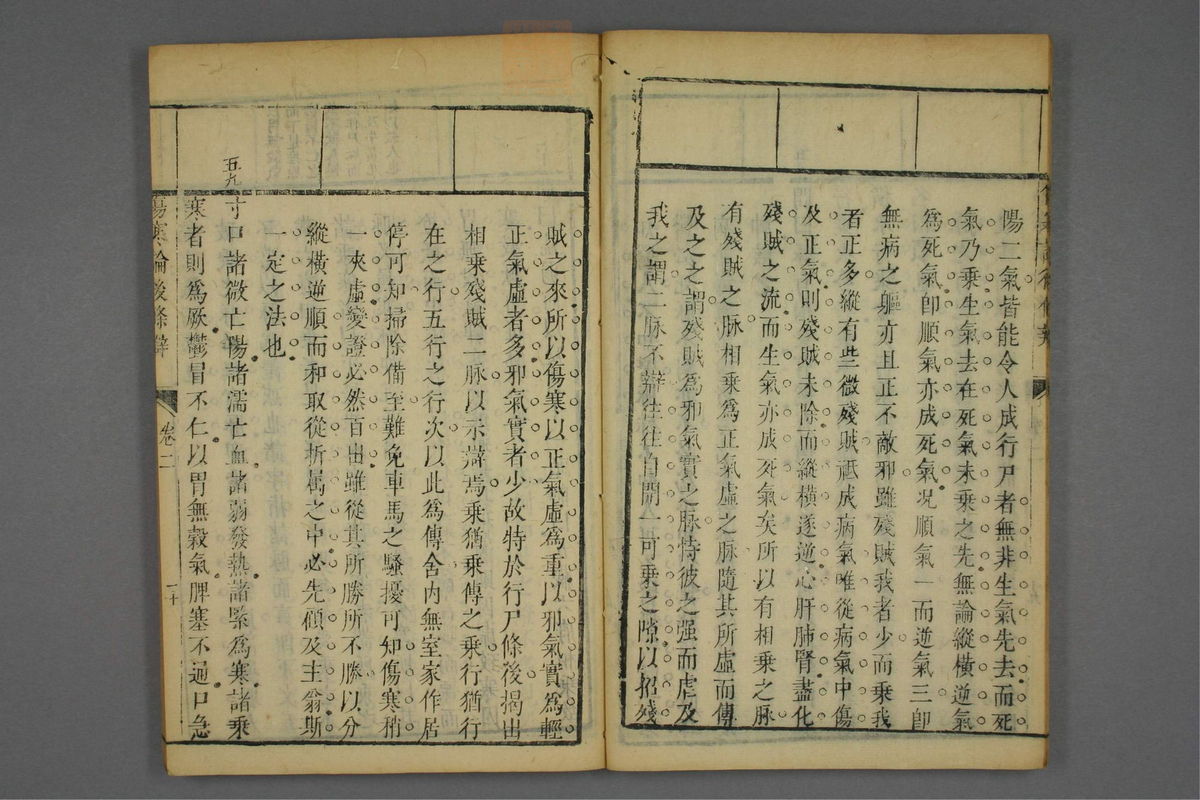 陽二氣皆能令人成行尸者無非生氣先去而死
氣乃乗生氣去在死氣未乗之先無論縱橫逆氣
爲死氣卽順氣亦成死氣况順氣一而逆氣三卽
無病之軀亦且正不敵邪雖殘賊我者少而乗我
者正多縱有些微殘賊祗成病氣唯從病氣中傷
及正氣則殘賊未除而縱橫遂逆心肝肺腎盡化
殘賊之流而生氣亦成死氣矣所以有相乗之脉
有殘賊之脉相乗爲正氣虛之脉隨其所虛而傳
及之之謂殘賊爲邪氣實之脉恃彼之强而虐及
我之謂二脉不辯往往自開一可乗之隙以招殘
賊之來所以傷寒以正氣虛爲重以邪氣實爲輕
正氣虛者多邪氣實者少故特於行尸條後揭出
相乗殘賊二脉以示辯焉乗猶乗傳之乗行猶行
在之行五行之行次以此爲傳舍内無室家作居
停可知掃除備至難免車馬之騷擾可知傷寒稍
一夾虛變證必然百出雖從其所勝所不勝以分
縱橫逆順而和取從折屬之中必先顧及主翁斯
一定之法也
五九
寸口諸微亡陽諸濡亡血諸弱發熱諸緊爲寒諸乗
寒者則爲厥鬱冒不仁以胃無穀氣脾塞不通口急
傷寒論後條辯 卷二 二十